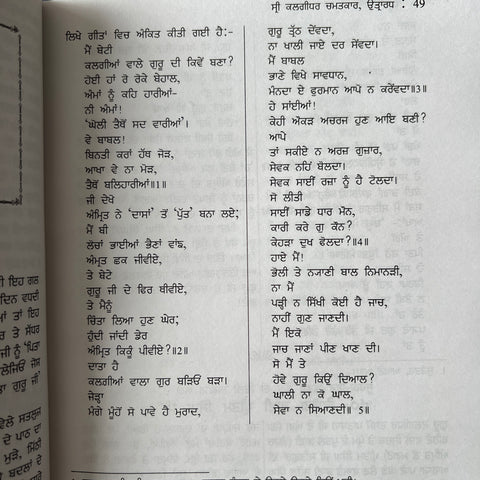 ਸ੍ਰੀ ਕਲਗੀਧਰ ਚਮਤਕਾਰ, ਉਤ੍ਰਾਰਧ : 49
ਲਿਖੇ ਗੀਤਾਂ ਵਿਚ ਅੰਕਿਤ ਕੀਤੀ ਗਈ ਹੈ:-
ਮੈਂ ਬੇਟੀ
ਕਲਗੀਆਂ ਵਾਲੇ ਗੁਰੂ ਦੀ ਕਿਵੇਂ ਬਣਾ?
ਹੋਈ ਹਾਂ ਰੋ ਰੋਕੇ ਬੇਹਾਲ,
ਅੰਮਾਂ ਨੂੰ ਕਹਿ ਹਾਰੀਆਂ-
ਨੀ ਅੰਮਾਂ!
'ਘੋਲੀ ਤੈਥੋਂ ਸਦ ਵਾਰੀਆਂ'।
ਵੇ ਬਾਬਲ!
ਬਿਨਤੀ ਕਰਾਂ ਹੱਥ ਜੋੜ,
ਆਖਾ ਵੇ ਨਾ ਮੋੜ,
ਤੈਥੋਂ ਬਲਿਹਾਰੀਆਂ॥1॥
ਜੀ ਦੇਖੋ
ਅੰਮ੍ਰਿਤ ਨੇ 'ਦਾਸਾਂ' ਤੋਂ 'ਪੁੱਤ' ਬਨਾ ਲਏ;
ਮੈਂ ਬੀ
ਲੋਚਾਂ ਭਾਈਆਂ ਭੈਣਾਂ ਵਾਂਙ,
ਅੰਮ੍ਰਿਤ ਛਕ ਜੀਵੀਏ,
ਤੇ ਬੇਟੇ
ਗੁਰੂ ਜੀ ਦੇ ਫਿਰ ਥੀਵੀਏ,
ਤੇ ਮੈਨੂੰ
ਚਿੰਤਾ ਲਿਆ ਹੁਣ ਘੇਰ;
ਹੁੰਦੀ ਜਾਂਦੀ ਡੇਰ
ਅੰਮ੍ਰਿਤ ਕਿਕੂੰ ਪੀਵੀਏ?॥2॥
ਦਾਤਾ ਹੈ
ਕਲਗੀਆਂ ਵਾਲਾ ਗੁਰ ਬੜਿਓਂ ਬੜਾ।
ਜੇੜ੍ਹਾ
ਮੰਗੇ ਮੂੰਹੋਂ ਸੋ ਪਾਵੇ ਹੈ ਮੁਰਾਦ,
ਗੁਰੂ ਤ੍ਰੁੱਠ ਦੇਂਵਦਾ,
ਨਾ ਖਾਲੀ ਜਾਏ ਦਰ ਸੇਂਵਦਾ।
ਮੈਂ ਬਾਬਲ
ਭਾਣੇ ਵਿਖੇ ਸਾਵਧਾਨ,
ਮੰਨਦਾ ਏ ਫੁਰਮਾਨ ਆਪੋ ਨ ਕਰੇਂਵਦਾ॥3॥
ਹੇ ਸਾਂਈਆਂ!
ਕੇਹੀ ਔਕੜ ਅਚਰਜ ਹੁਣ ਆਇ ਬਣੀ?
ਆਪੇ
ਤਾਂ ਸਕੀਏ ਨ ਅਰਜ਼ ਗੁਜ਼ਾਰ,
ਸੇਵਕ ਨਹਿਂ ਬੋਲਦਾ।
ਸੇਵਕ ਸਾਈਂ ਰਜ਼ਾ ਨੂੰ ਹੈ ਟੋਲਦਾ।
ਸੋ ਲੀਤੀ
ਸਾਈਂ ਸਾਡੇ ਧਾਰ ਮੋਨ,
ਕਾਰੀ ਕਰੇ ਗੁ ਕੌਨ?
ਕੇਹੜਾ ਦੁਖ ਫੋਲਦਾ?॥4॥
ਹਾਏ ਮੈਂ!
ਭੋਲੀ ਤੇ ਨ੍ਯਾਣੀ ਬਾਲ ਨਿਮਾਨੜੀ,
ਨਾ ਮੈਂ
ਪੜ੍ਹੀ ਨ ਸਿੱਖੀ ਕੋਈ ਹੈ ਜਾਚ,
ਨਾਹੀਂ ਗੁਣ ਜਾਣਦੀ।
ਮੈਂ ਇਕੋ
ਜਾਚ ਜਾਣਾਂ ਪੀਣ ਖਾਣ ਦੀ।
ਸੋ ਮੈਂ ਤੇ
ਹੋਵੇ ਗੁਰੂ ਕਿਉਂ ਦਿਆਲ?
ਘਾਲੀ ਨਾ ਕੋ ਘਾਲ,
ਸੇਵਾ ਨ ਸਿਆਣਦੀ॥ 5॥
ਇਹ ਗਲ
ਦਿਨ ਵਧਦੀ
ਤਾਂ ਇਹ
ਤੇ ਸੱਧਰ
ਜੀ ਨੂੰ 'ਪਿਤਾ
ਗੁਰੂ ਜੀ
ਵੇਲੇ ਸਤਸੰਗ
ਦੇ ਪਾਨ ਦਾ
ਮੁੜੇ, ਮਿੱਠੀ
ਬਦਲਾਂ ਦੇ